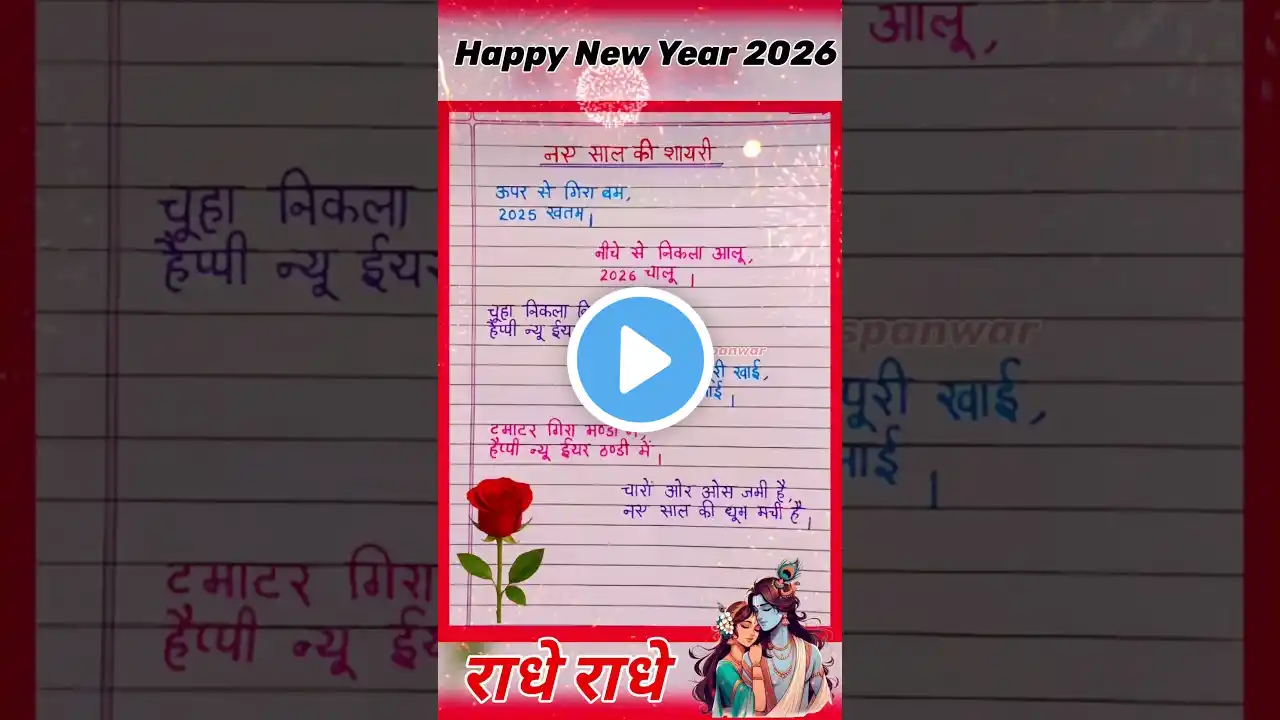 Happy New Year 2026
नए साल की शायरी
ऊपर से गिरा बम,
2025 खतम।
नीचे से निकला आलू,
2026 चालू।
चूहा निकला
हैप्पी न्यू ईयर
री खाई,
टमाटर गिरा मण्डी में,
हैप्पी न्यू ईयर ठण्डी में।
चारों ओर ओस जमी है,
नए साल की धूम मची है।
राधे राधे
आलू,
चूहा निकला
हैप्पी न्यू ईयर
spanwar
पूरी खाई,
टमाटर गिरा
हैप्पी न्यू